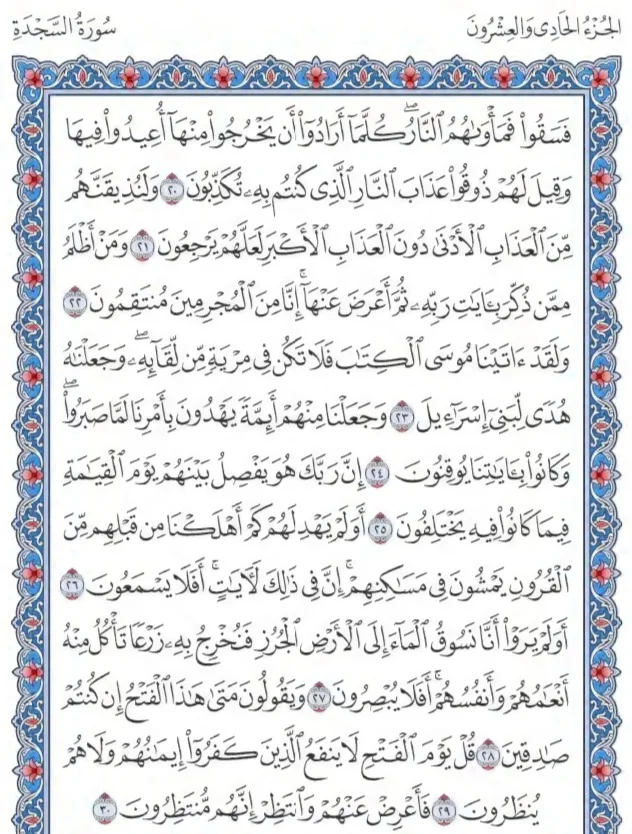 الجزء الحادي والعشرون
سورة السجدة
فَسَقُوا۟ فَمَأْوَىٰهُمُ ٱلنَّارُ ۖ كُلَّمَآ أَرَادُوٓا۟ أَن يَخْرُجُوا۟ مِنْهَآ أُعِيدُوا۟ فِيهَا
وَقِيلَ لَهُمْ ذُوقُوا۟ عَذَابَ ٱلنَّارِ ٱلَّذِى كُنتُم بِهِۦ تُكَذِّبُونَ ٢٠ وَلَنُذِيقَنَّهُم
مِّنَ ٱلْعَذَابِ ٱلْأَدْنَىٰ دُونَ ٱلْعَذَابِ ٱلْأَكْبَرِ لَعَلَّهُمْ يَرْجِعُونَ ٢١ وَمَنْ أَظْلَمُ
مِمَّن ذُكِّرَ بِـَٔايَـٰتِ رَبِّهِۦ ثُمَّ أَعْرَضَ عَنْهَآ ۚ إِنَّا مِنَ ٱلْمُجْرِمِينَ مُنتَقِمُونَ ٢٢
وَلَقَدْ ءَاتَيْنَا مُوسَى ٱلْكِتَـٰبَ فَلَا تَكُن فِى مِرْيَةٍ مِّن لِّقَآئِهِۦ ۖ وَجَعَلْنَـٰهُ
هُدًى لِّبَنِىٓ إِسْرَٰٓءِيلَ ٢٣ وَجَعَلْنَا مِنْهُمْ أَئِمَّةً يَهْدُونَ بِأَمْرِنَا لَمَّا صَبَرُوا۟ ۖ
وَكَانُوا۟ بِـَٔايَـٰتِنَا يُوقِنُونَ ٢٤ إِنَّ رَبَّكَ هُوَ يَفْصِلُ بَيْنَهُمْ يَوْمَ ٱلْقِيَـٰمَةِ
فِيمَا كَانُوا۟ فِيهِ يَخْتَلِفُونَ ٢٥ أَوَلَمْ يَهْدِ لَهُمْ كَمْ أَهْلَكْنَا مِن قَبْلِهِم مِّنَ
ٱلْقُرُونِ يَمْشُونَ فِى مَسَـٰكِنِهِمْ ۚ إِنَّ فِى ذَٰلِكَ لَـَٔايَـٰتٍ ۖ أَفَلَا يَسْمَعُونَ ٢٦
أَوَلَمْ يَرَوْا۟ أَنَّا نَسُوقُ ٱلْمَآءَ إِلَى ٱلْأَرْضِ ٱلْجُرُزِ فَنُخْرِجُ بِهِۦ زَرْعًا تَأْكُلُ مِنْهُ
أَنْعَـٰمُهُمْ وَأَنفُسُهُمْ ۖ أَفَلَا يُبْصِرُونَ ٢٧ وَيَقُولُونَ مَتَىٰ هَـٰذَا ٱلْفَتْحُ إِن كُنتُمْ
صَـٰدِقِينَ ٢٨ قُلْ يَوْمَ ٱلْفَتْحِ لَا يَنفَعُ ٱلَّذِينَ كَفَرُوٓا۟ إِيمَـٰنُهُمْ وَلَا هُمْ
يُنظَرُونَ ٢٩ فَأَعْرِضْ عَنْهُمْ وَٱنتَظِرْ إِنَّهُم مُّنتَظِرُونَ ٣٠